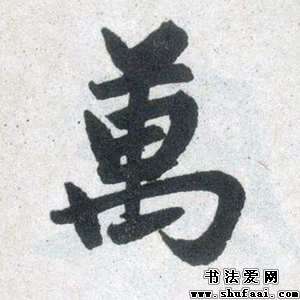 萬
书法爱网
www.shufaai.com